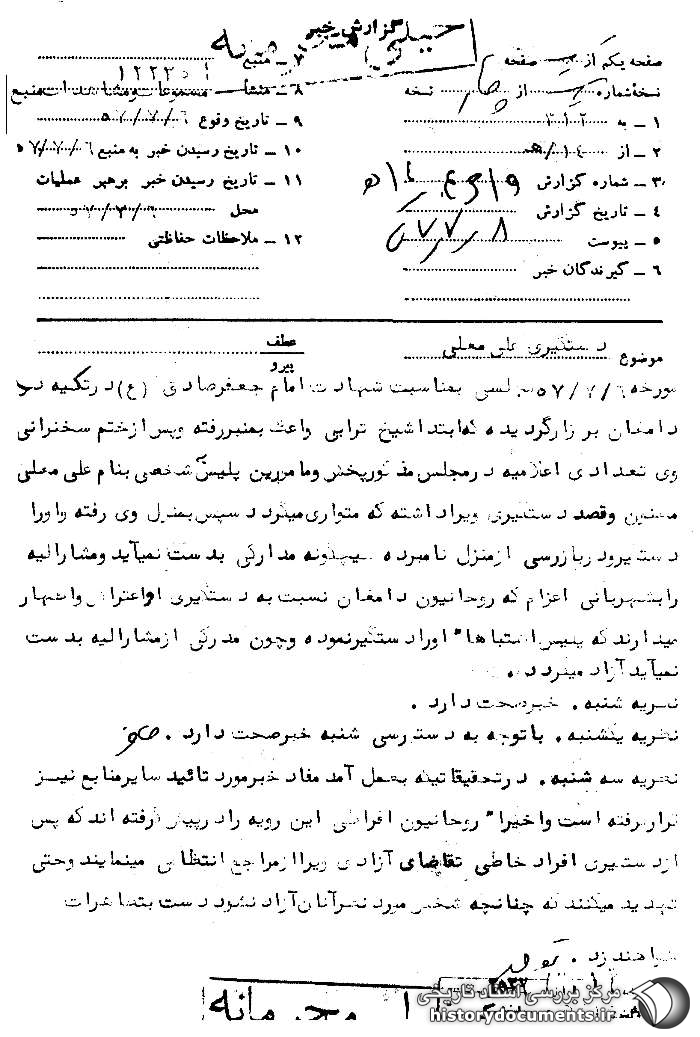 گزارش خبر
صفحه یکم از یک صفحه
نسخه شماره یک از چهار نسخه
۱ - به ۳۱۲
۲ - از ۱۴/ه
۳ - شماره گزارش
۴ - تاریخ گزارش
۵ - پیوست
۶ - گیرندگان خبر
۷ - منبع ۱۲۲۳۵
۸ - منشأ مسموعات و مشاهدات منبع
۹ - تاریخ وقوع ۵۷/۷/۶
۱۰ - تاریخ رسیدن خبر به منبع ۵۷/۷/۶
۱۱ - تاریخ رسیدن خبر برهبر عملیات
محل
۱۲ - ملاحظات حفاظتی
موضوع دستگیری علی معلی
عطف
پیرو
مورخه ۵۷/۷/۶ مجلسی بمناسبت شهادت امام جعفر صادق (ع) در تکیه
دامغان برگزار گردیده که ابتدا شیخ ترابی واعظ بمنبر رفته و پس از ختم سخنرانی
وی تعدادی اعلامیه در مجلس مذکور پخش و مامورین پلیس شخصی بنام علی معلی
مظنون و قصد دستگیری ویرا داشته که متواری میگردد سپس بمنزل وی رفته و اورا
دستگیر و در بازرسی از منزل نامبرده هیچگونه مدارکی بدست نمیآید و مشارالیه
را بشهربانی اعزام که روحانیون دامغان نسبت به دستگیری او اعتراض و اظهار
میدارند که پلیس اشتباها" اورا دستگیر نموده و چون مدرکی از مشارالیه بدست
نمیآید آزاد میگردد.
نظریه شنبه . خبر صحت دارد .
نظریه یکشنبه . با توجه به دسترسی شنبه خبر صحت دارد .
نظریه سه شنبه . در تحقیقاتیکه بعمل آمد مفاد خبر مورد تائید سایر منابع نیز
قرار گرفته است و اخیرا" روحانیون افراطی این رویه را در پیش گرفته اند که پس
از دستگیری افراد خاطی تقاضای آزادی ویرا از مراجع انتظامی مینمایند و حتی
تهدید میکنند که چنانچه شخص مورد نظر آنان آزاد نشود دست بتظاهرات
خواهند زد .
محرمانه
مرکز بررسی اسناد تاریخی
historydocuments.ir